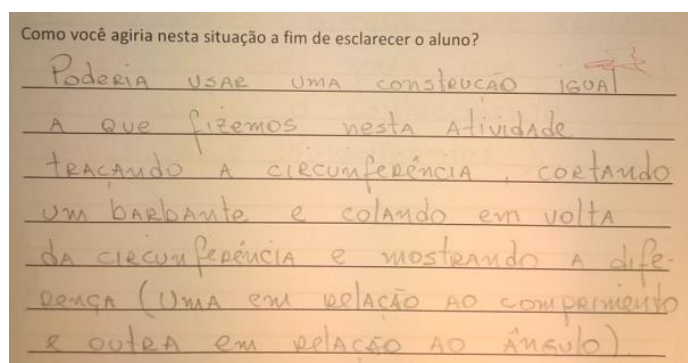 Como você agiria nesta situação a fim de esclarecer o aluno?
Poderia usar uma construcão igual
a que fizemos nesta atividade
tracando a circunferência, cortando
um barbante e colando em volta
da circunferência e mostrando a dife-
rença (uma em relação ao comprimento
e outra em relação ao ângulo)